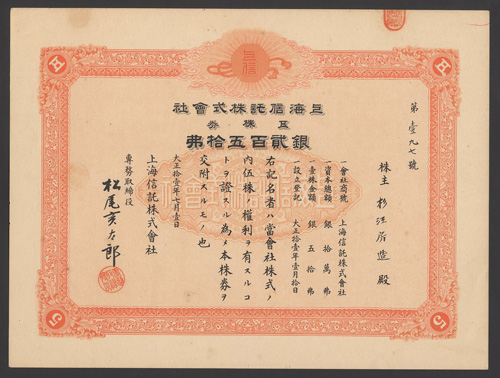 上海信託株式會社
五株券
銀貳百五拾弗
第壹九七號
株主 杉江房造 殿
一會社商號 上海信託株式會社
一資本總額 銀拾萬弗
一壹株金額 銀五十弗
一設立登記 大正拾壹年壹月拾日
右記名者ハ當會社株式ノ
内五株ノ權利ヲ有スルコ
トヲ證スル為メ本株券ヲ
交附スルモノ也
大正拾壹年七月壹日
上海信託株式會社
專務取締役
松尾亥太郎
五
五
5
5